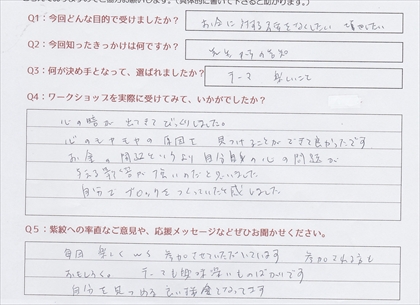 Q1：今回どんな目的で受けましたか？
お金に対する不安をなくしたい
Q2：今回知ったきっかけは何ですか？
先生からの告知
Q3：何が決め手となって、選ばれましたか？
テーマ 楽しいこと
Q4：ワークショップを実際に受けてみて、いかがでしたか？
心の暗が出てきてびっくりしました。
心のモヤモヤの原因を見つけることができて良かったです
お金の問題というより自分自身の心の問題が
影響が
自分はブロックをつくっていたと感じました
Q5：紫紋への率直なご意見や、応援メッセージなどぜひお聞かせください。
毎回楽しくWS参加させていただいています 参加される方も
おもしろく。テーマも興味深いものばかりです
自分を見つめる良い機会となってます